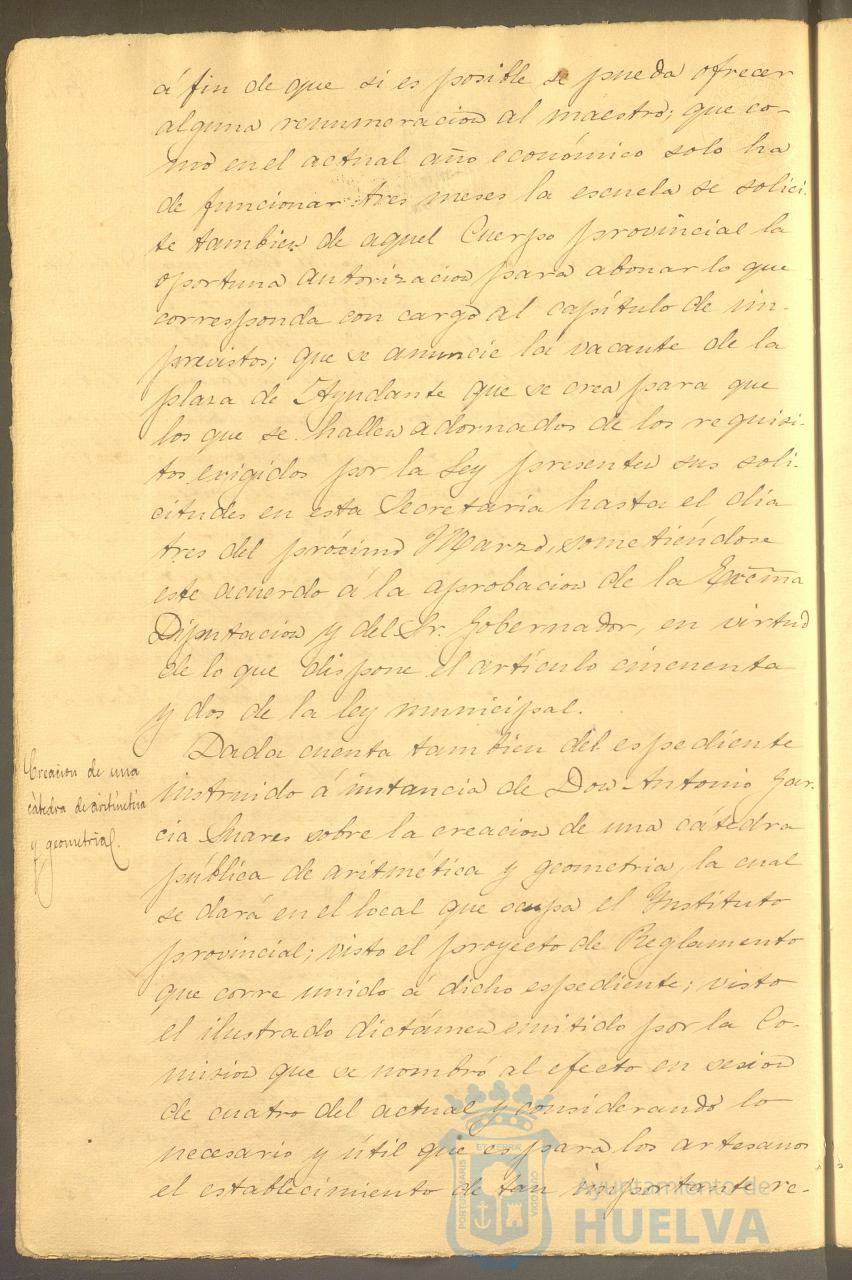 á fin de que si es posible se pueda ofrecer
alguna renumeracion al maestro; que co-
mo en el actual año económico solo ha
de funcionar tres meses la escuela se solici-
te tambien de aquel Cuerpo provincial la
oportuna autorizacion para abonar lo que
corresponda con cargo al capítulo de im-
previstos; que se anuncie la vacante de la
plasa de Ayudante que se crea para que
los que se hallen adornados de los requisi-
tos exigidos por la Ley presenten sus soli-
citudes en esta Secretaría hasta el dia
tres del prócimo Marzo, sometiéndose
este acuerdo á la aprobacion de la Excma
Diputacion y del Sr. Gobernador, en virtud
de lo que dispone el artículo cincuenta
y dos de la ley municipal.
Creacion de una
cátedra de aritmética
y geometría.
Dada cuenta tambien del espediente
instruido á instancia de Don Antonio Gar-
cia Suares sobre la creacion de una cátedra
pública de aritmética y geometria, la cual
se dará en el local que ocupa el Instituto
provincial; visto el proyecto de Reglamento
que corre unido á dicho espediente; visto
el ilustrado dictámen emitido por la Co-
mision que se nombró al efecto en sesion
de cuatro del actual y considerando lo
necesario y útil que es para los artesanos
el establecimiento de tan importante re-
PORTUS MARIS ET TERRAE CUSTODIA
Ayuntamiento de
HUELVA